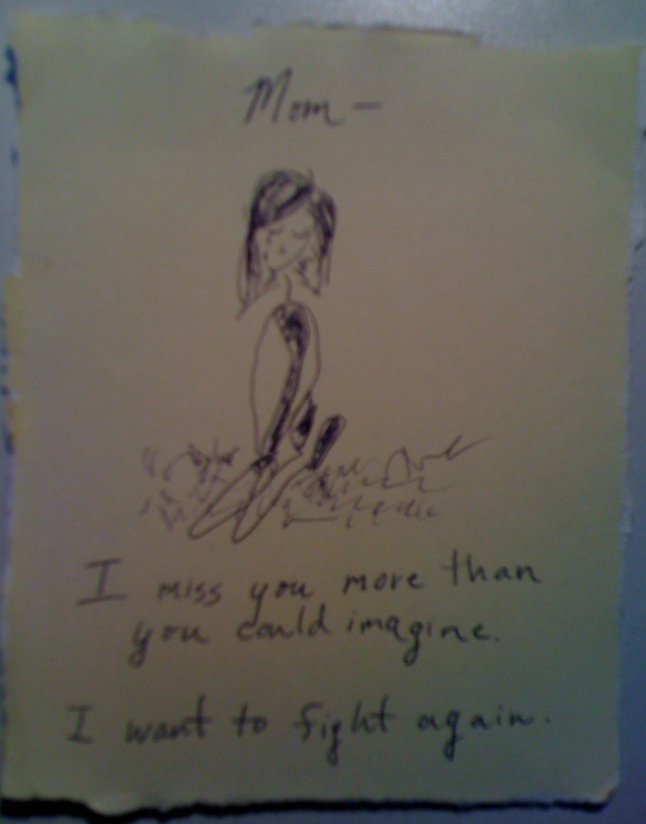 Mom –
I miss you more than
you could imagine.
I want to fight again.